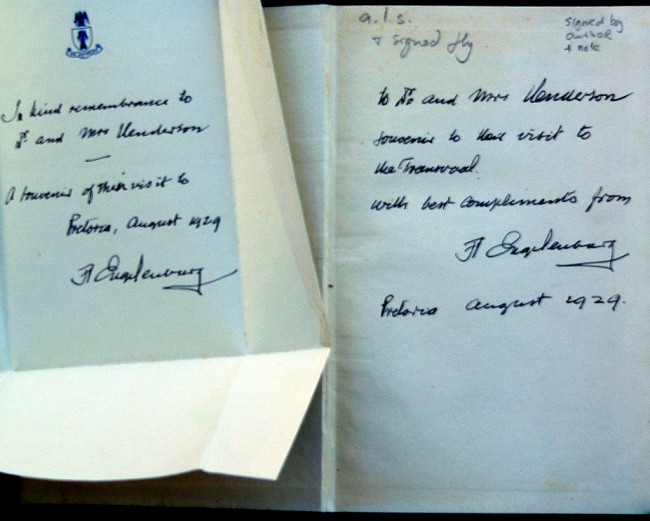 In kind remembrance to
Dr. and Mrs Henderson
—
A souvenir of their visit to
Pretoria, August 1929
FV Engelenburg
a.l.s.
& signed fly
signed by
author
& note
to Dr. and Mrs Henderson
souvenir to their visit to
the Transvaal.
with best compliments from
FV Engelenburg
Pretoria August 1929.